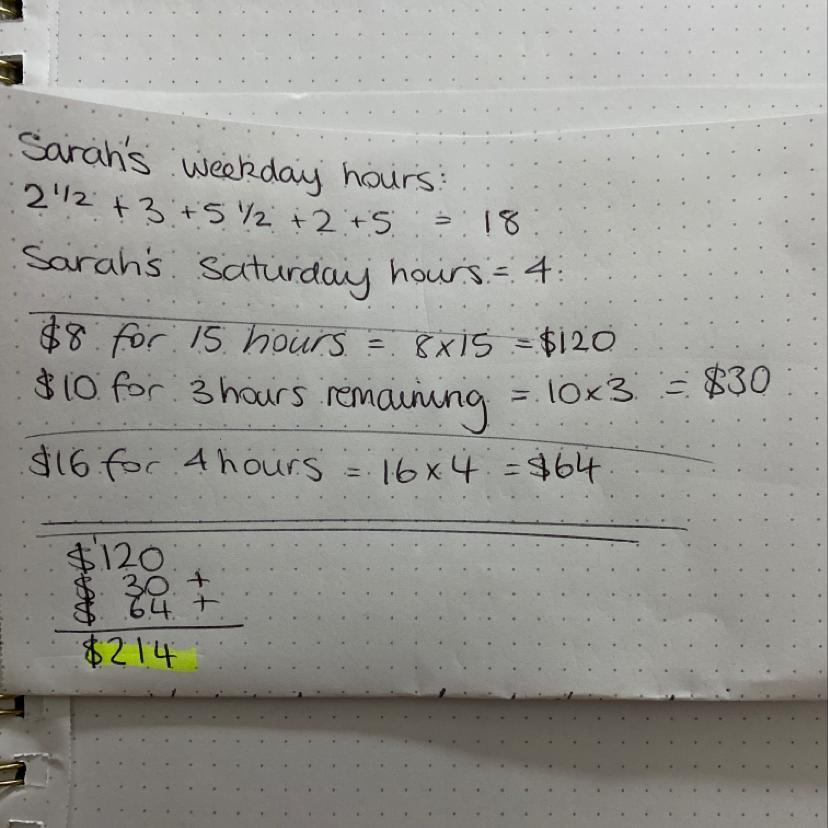 Sarah's weekday hours:
2 1/2 + 3 + 5 1/2 + 2 + 5 = 18
Sarah's Saturday hours = 4
$8 for 15 hours = 8x15 = $120
$10 for 3 hours remaining = 10x3 = $30
$16 for 4 hours = 16 x 4 = $64
$120
$ 30 +
$ 64 +
$214